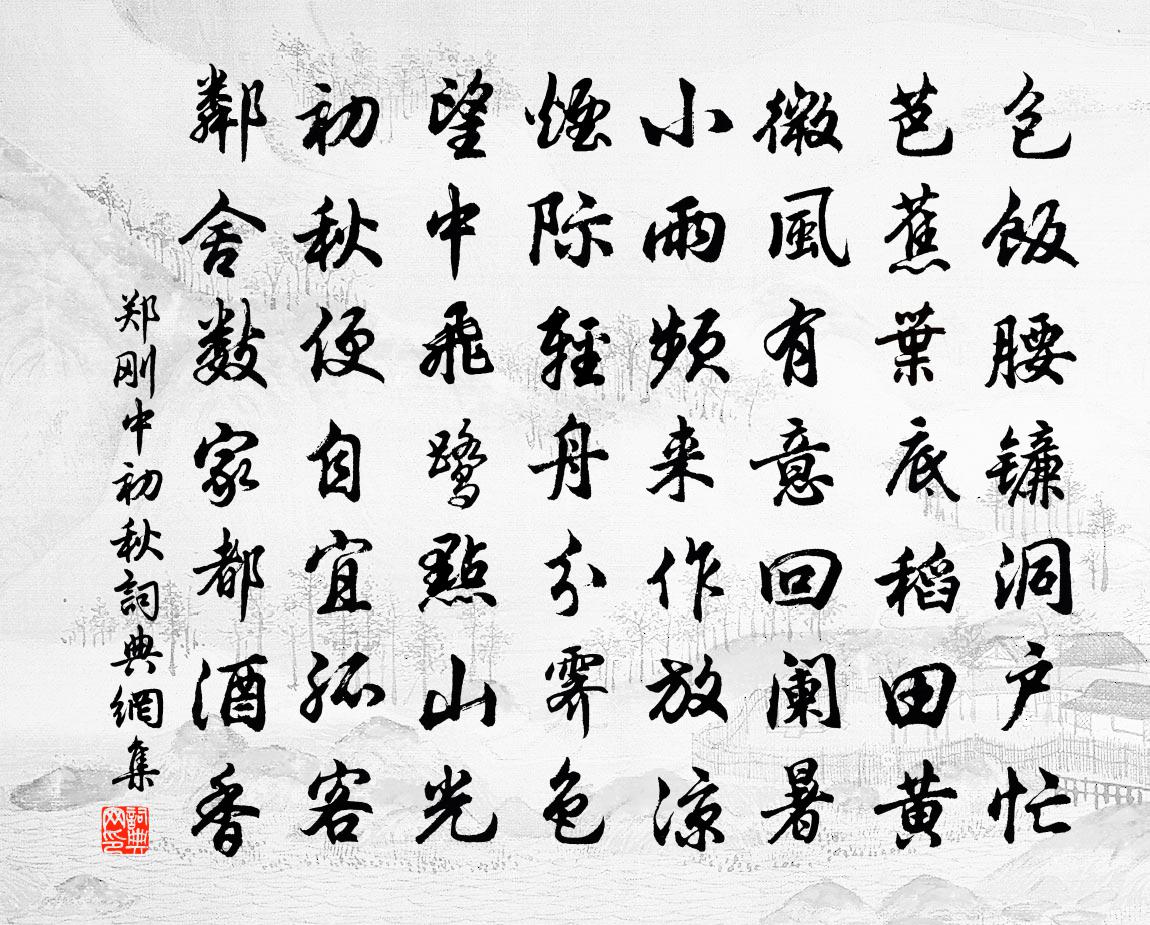 包飯腰镰洞户忙
芭蕉葉底稻田黄
微風有意回阑暑
小雨頻来作放涼
煙际輕舟分霽色
望中飛鹭點山光
初秋便自宜孤客
鄰舍数家都酒香
郑刚中初秋詞典網集
詞典網印